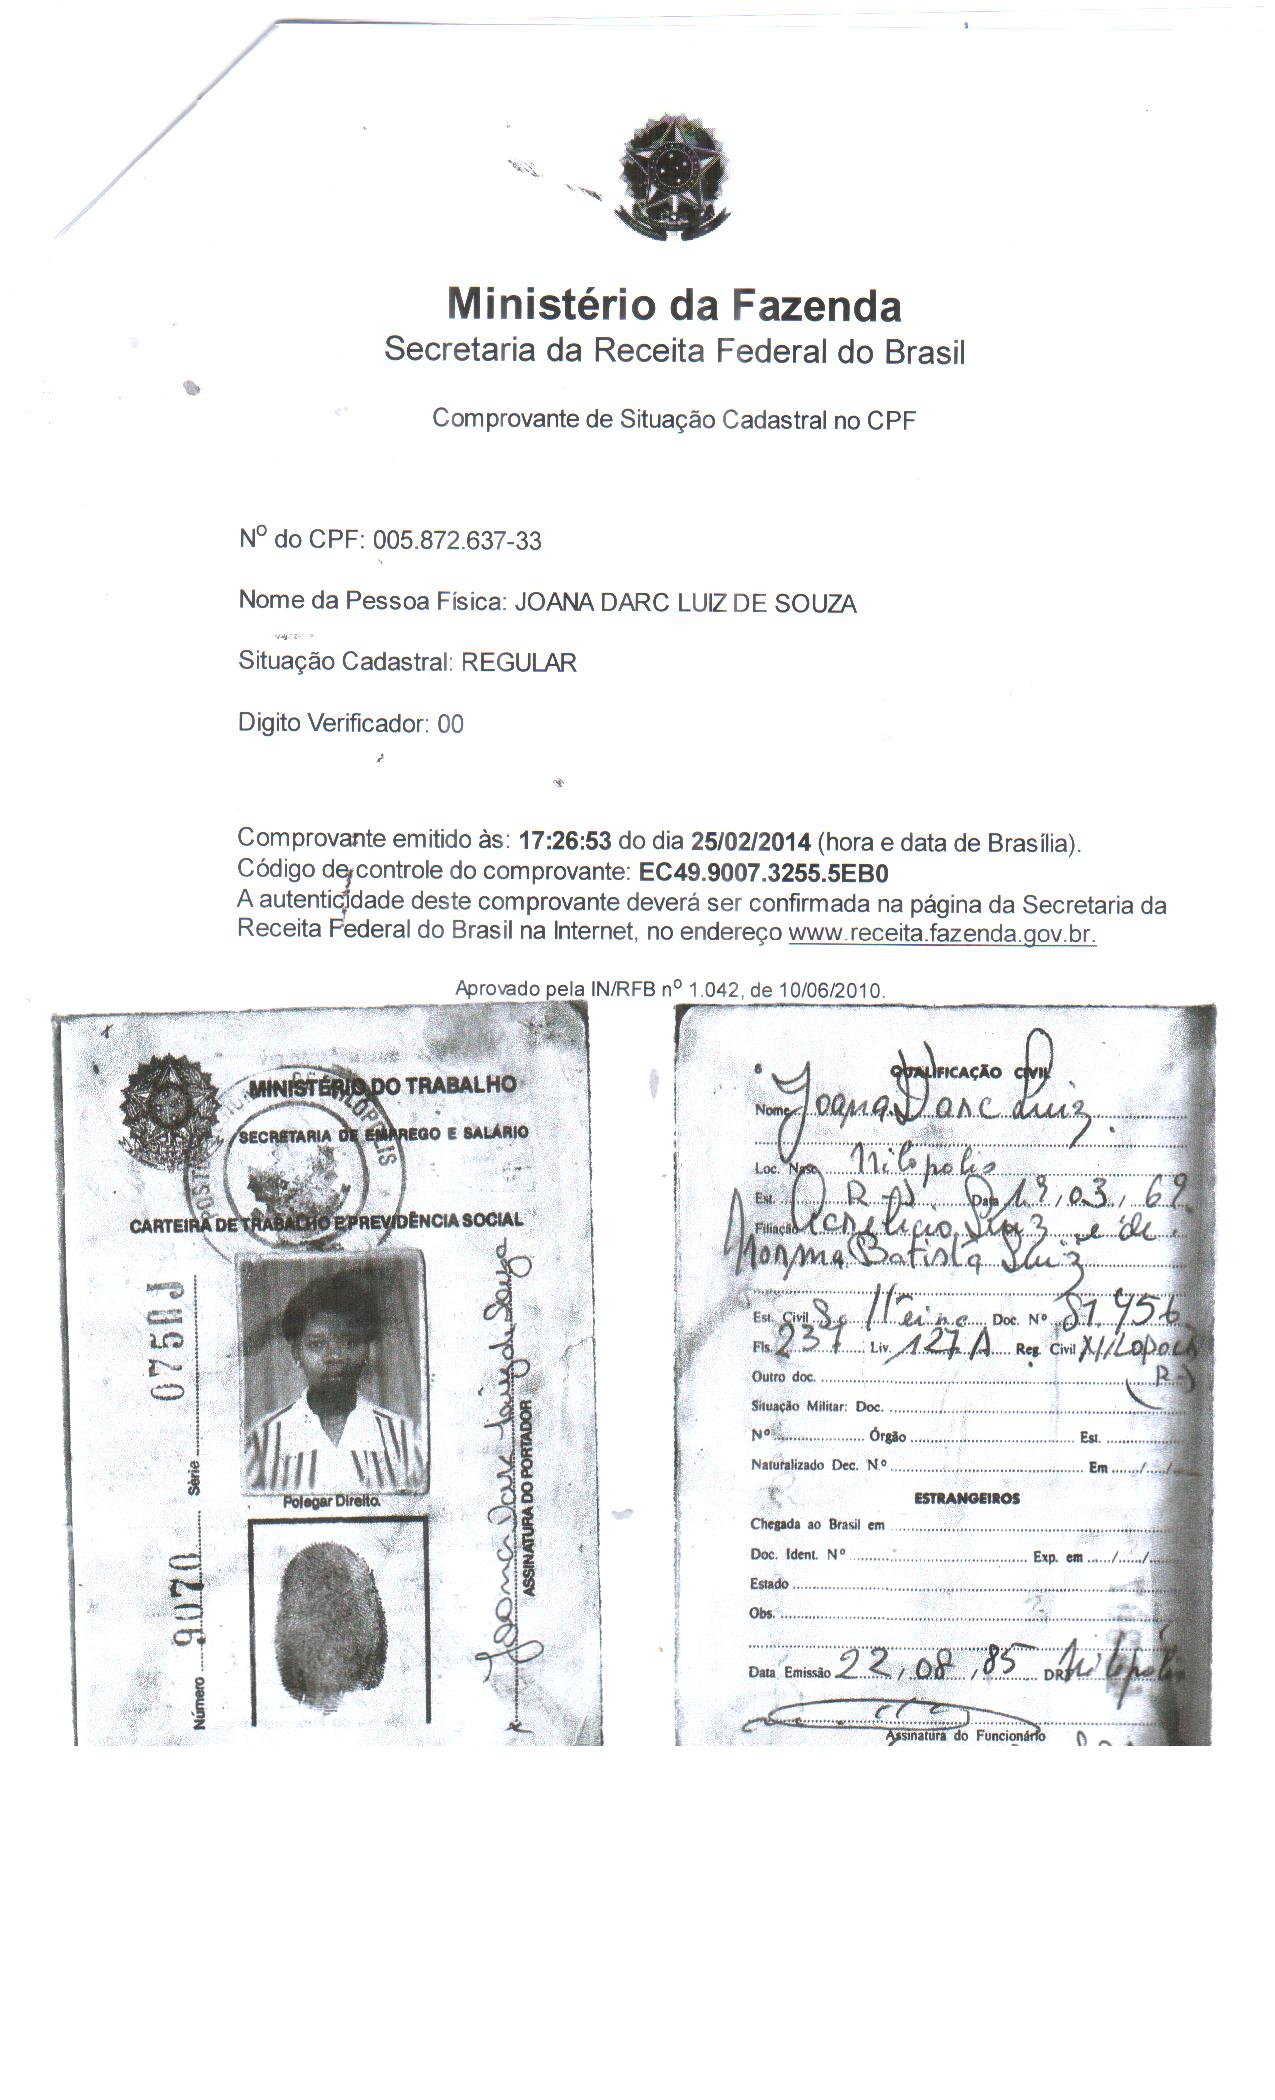 Ministério da Fazenda
Secretaria da Receita Federal do Brasil
Comprovante de Situação Cadastral no CPF
Nº do CPF: 005.872.637-33
Nome da Pessoa Física: JOANA DARC LUIZ DE SOUZA
Situação Cadastral: REGULAR
Digito Verificador: 00
Comprovante emitido às: 17:26:53 do dia 25/02/2014 (hora e data de Brasília).
Código de controle do comprovante: EC49.9007.3255.5EB0
A autenticidade deste comprovante deverá ser confirmada na página da Secretaria da
Receita Federal do Brasil na Internet, no endereço www.receita.fazenda.gov.br.
Aprovado pela IN/RFB nº 1.042, de 10/06/2010.
MINISTÉRIO DO TRABALHO
SECRETARIA DE EMPREGO E SALÁRIO
CARTEIRA DE TRABALHO E PREVIDÊNCIA SOCIAL
Polegar Direito
Número 9070 Série 075RJ
Joana Darc Luiz de Souza
ASSINATURA DO PORTADOR
QUALIFICAÇÃO CIVIL
Nome Joana Darc Luiz
Loc. Nasc. Nilópolis
Est. RJ Data 19, 03, 69
Filiação Luiz e de
Norma Batista Luiz
Est. Civil Solteira Doc. Nº 81.456
Fls. 237 Liv. 127A Reg. Civil
Outro doc. RJ
Situação Militar: Doc.
Nº Órgão Est.
Naturalizado Dec. N.º Em / /
ESTRANGEIROS
Chegada ao Brasil em
Doc. Ident. Nº Exp. em / /
Estado
Obs.
Data Emissão 22, 08, 85 DRT Nilópolis
Assinatura do Funcionário